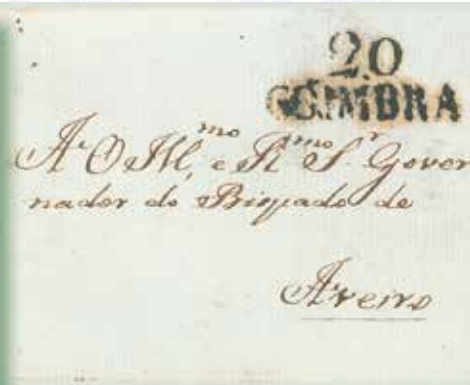 20
COIMBRA
A O Ill.mo e R.mo S.r Gover
nador do Bispado de
Aveiro